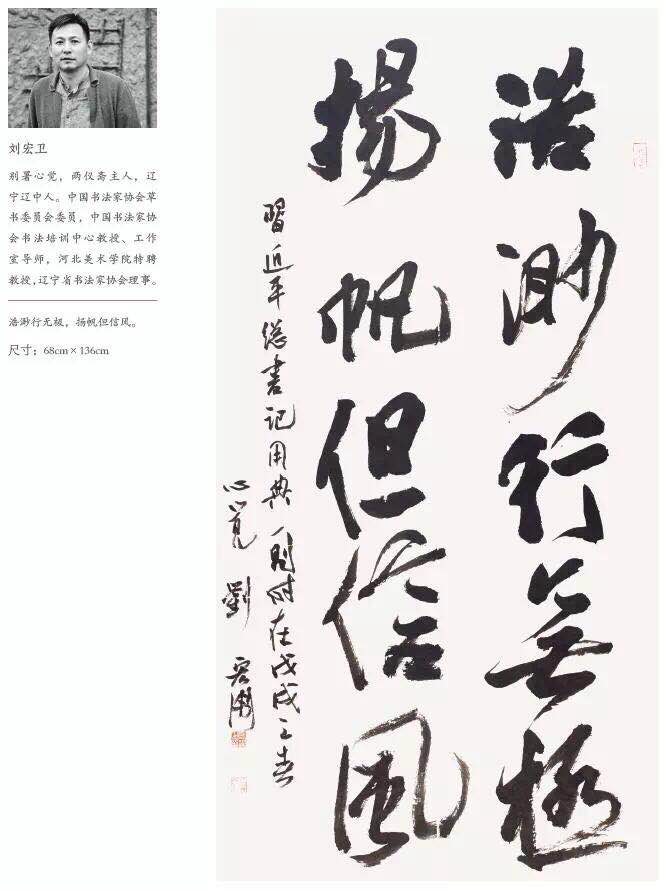 刘宏卫
别署心觉，两仪斋主人，辽
宁辽中人。中国书法家协会草
书委员会委员，中国书法家协
会书法培训中心教授、工作
室导师，河北美术学院特聘
教授，辽宁省书法家协会理事。
浩渺行无极，扬帆但信风。
尺寸：68cm×136cm
浩渺行無極
揚帆但信風
習近平總書记用典一則时在戊戌之春
心覺劉宏衛